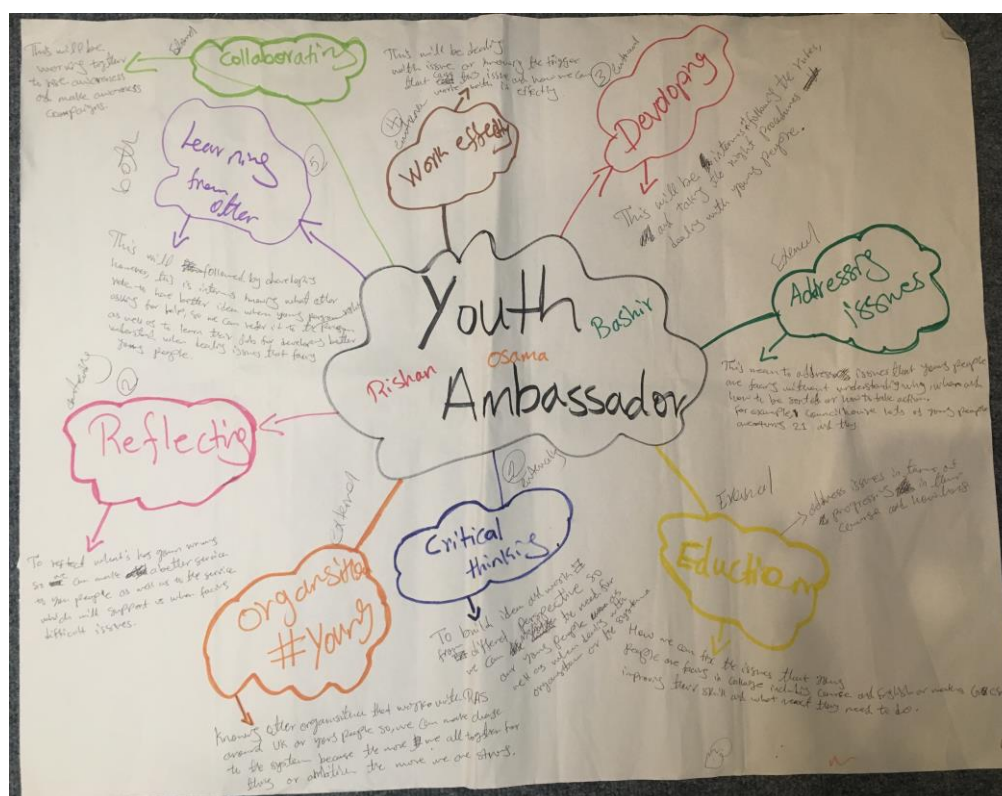 This will be
working together
to rise awareness
and make awareness
campaigns.
External
Collaborating
This will be dealing
with issue or knowing the trigger
that this issue and how we can
work with it effectly
4
Work effectly
3
Devoloping
This will be interms following the rules,
and taking the right procedures
dealing with young people.
both
Learning
from other
5
This will followed by developing
however, this is interms knowing what other
role to have better idea when young person
asking for help, so we can refer it to the
as well as to learn their jobs for developing better
understand, when dealing issues that facing
young people.
Youth
Ambassador
Rishan
Osama
Bashir
External
Addressing
issues
This mean to address issues that young people
are facing without understanding
how to be sorted or how to take action.
For example, council house lots of young people
21 and they
2
Reflecting
To reflect what's has gown wrong
so can make a better service
to you people as well us to the service
which will support us when facing
difficult issues.
external
Organsition
#Young
Knowing other organisations that works with RAS
around UK or young people so, we can make change
to the system because the more we all together for
thing or ambition the more we are strong.
1
Critical
thinking
To build idea and work
from different perspective so
we can the need for
our young people as
well as when dealing with
organisation or the system
External
Eduction
address issues in terms of
progressing in their
course and
How we can fix the issues that young
people are facing in college including course and English or maths
improving their skills and what next they need to do.